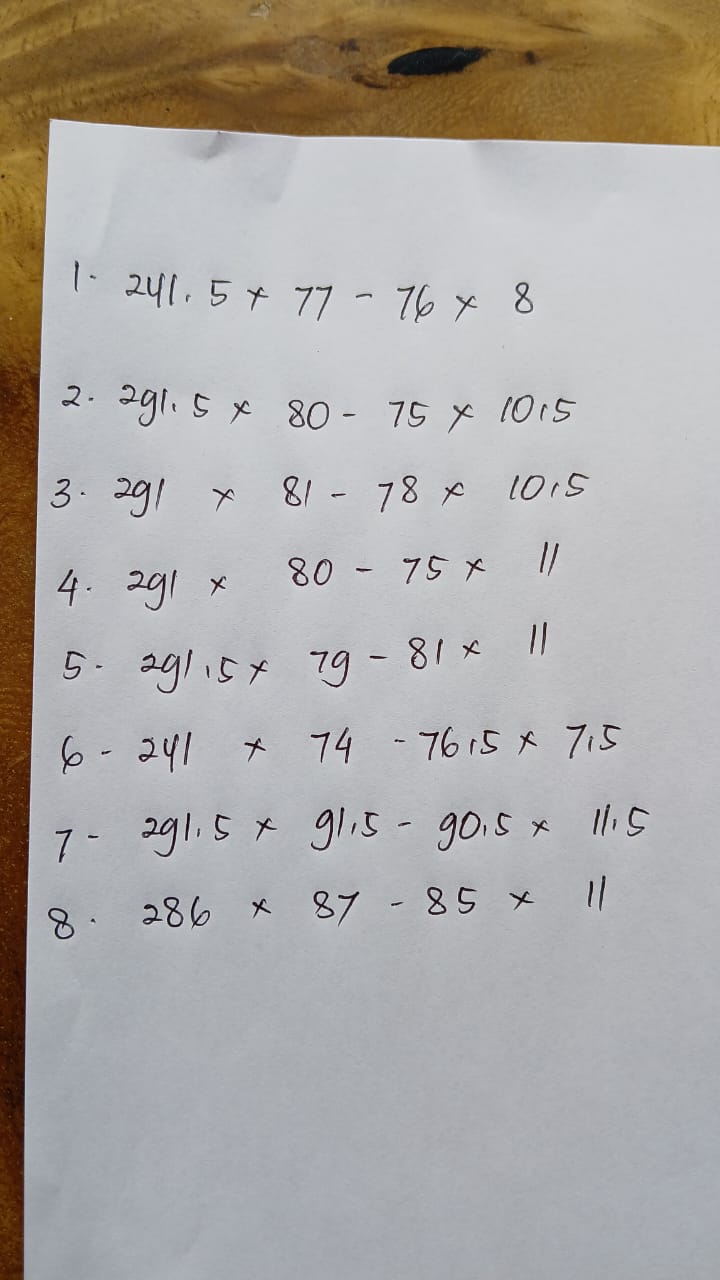 1. 241.5 x 77 - 76 x 8
2. 291.5 x 80 - 75 x 10.5
3. 291 x 81 - 78 x 10.5
4. 291 x 80 - 75 x 11
5. 291.5 x 79 - 81 x 11
6 - 241 x 74 - 76.5 x 7.5
7 - 291.5 x 91.5 - 90.5 x 11.5
8. 286 x 87 - 85 x 11